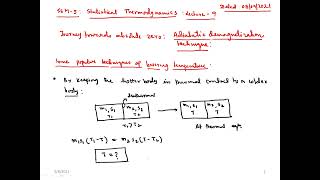 SEM-5: Statistical Thermodynamics: Lecture-9
Journey towards absolute zero: Adiabatic demagnetization technique:
Some popular techniques of lowering temperature:
• By keeping the hotter body in thermal contact to a colder body:
m₁,s₁ T₁
m₂,s₂ T₂
m₁,s₁ T
m₂,s₂ T
T₁>T₂
At thermal eqm.
m₁s₁(T₁-T) = m₂s₂(T-T₂)
T = ?